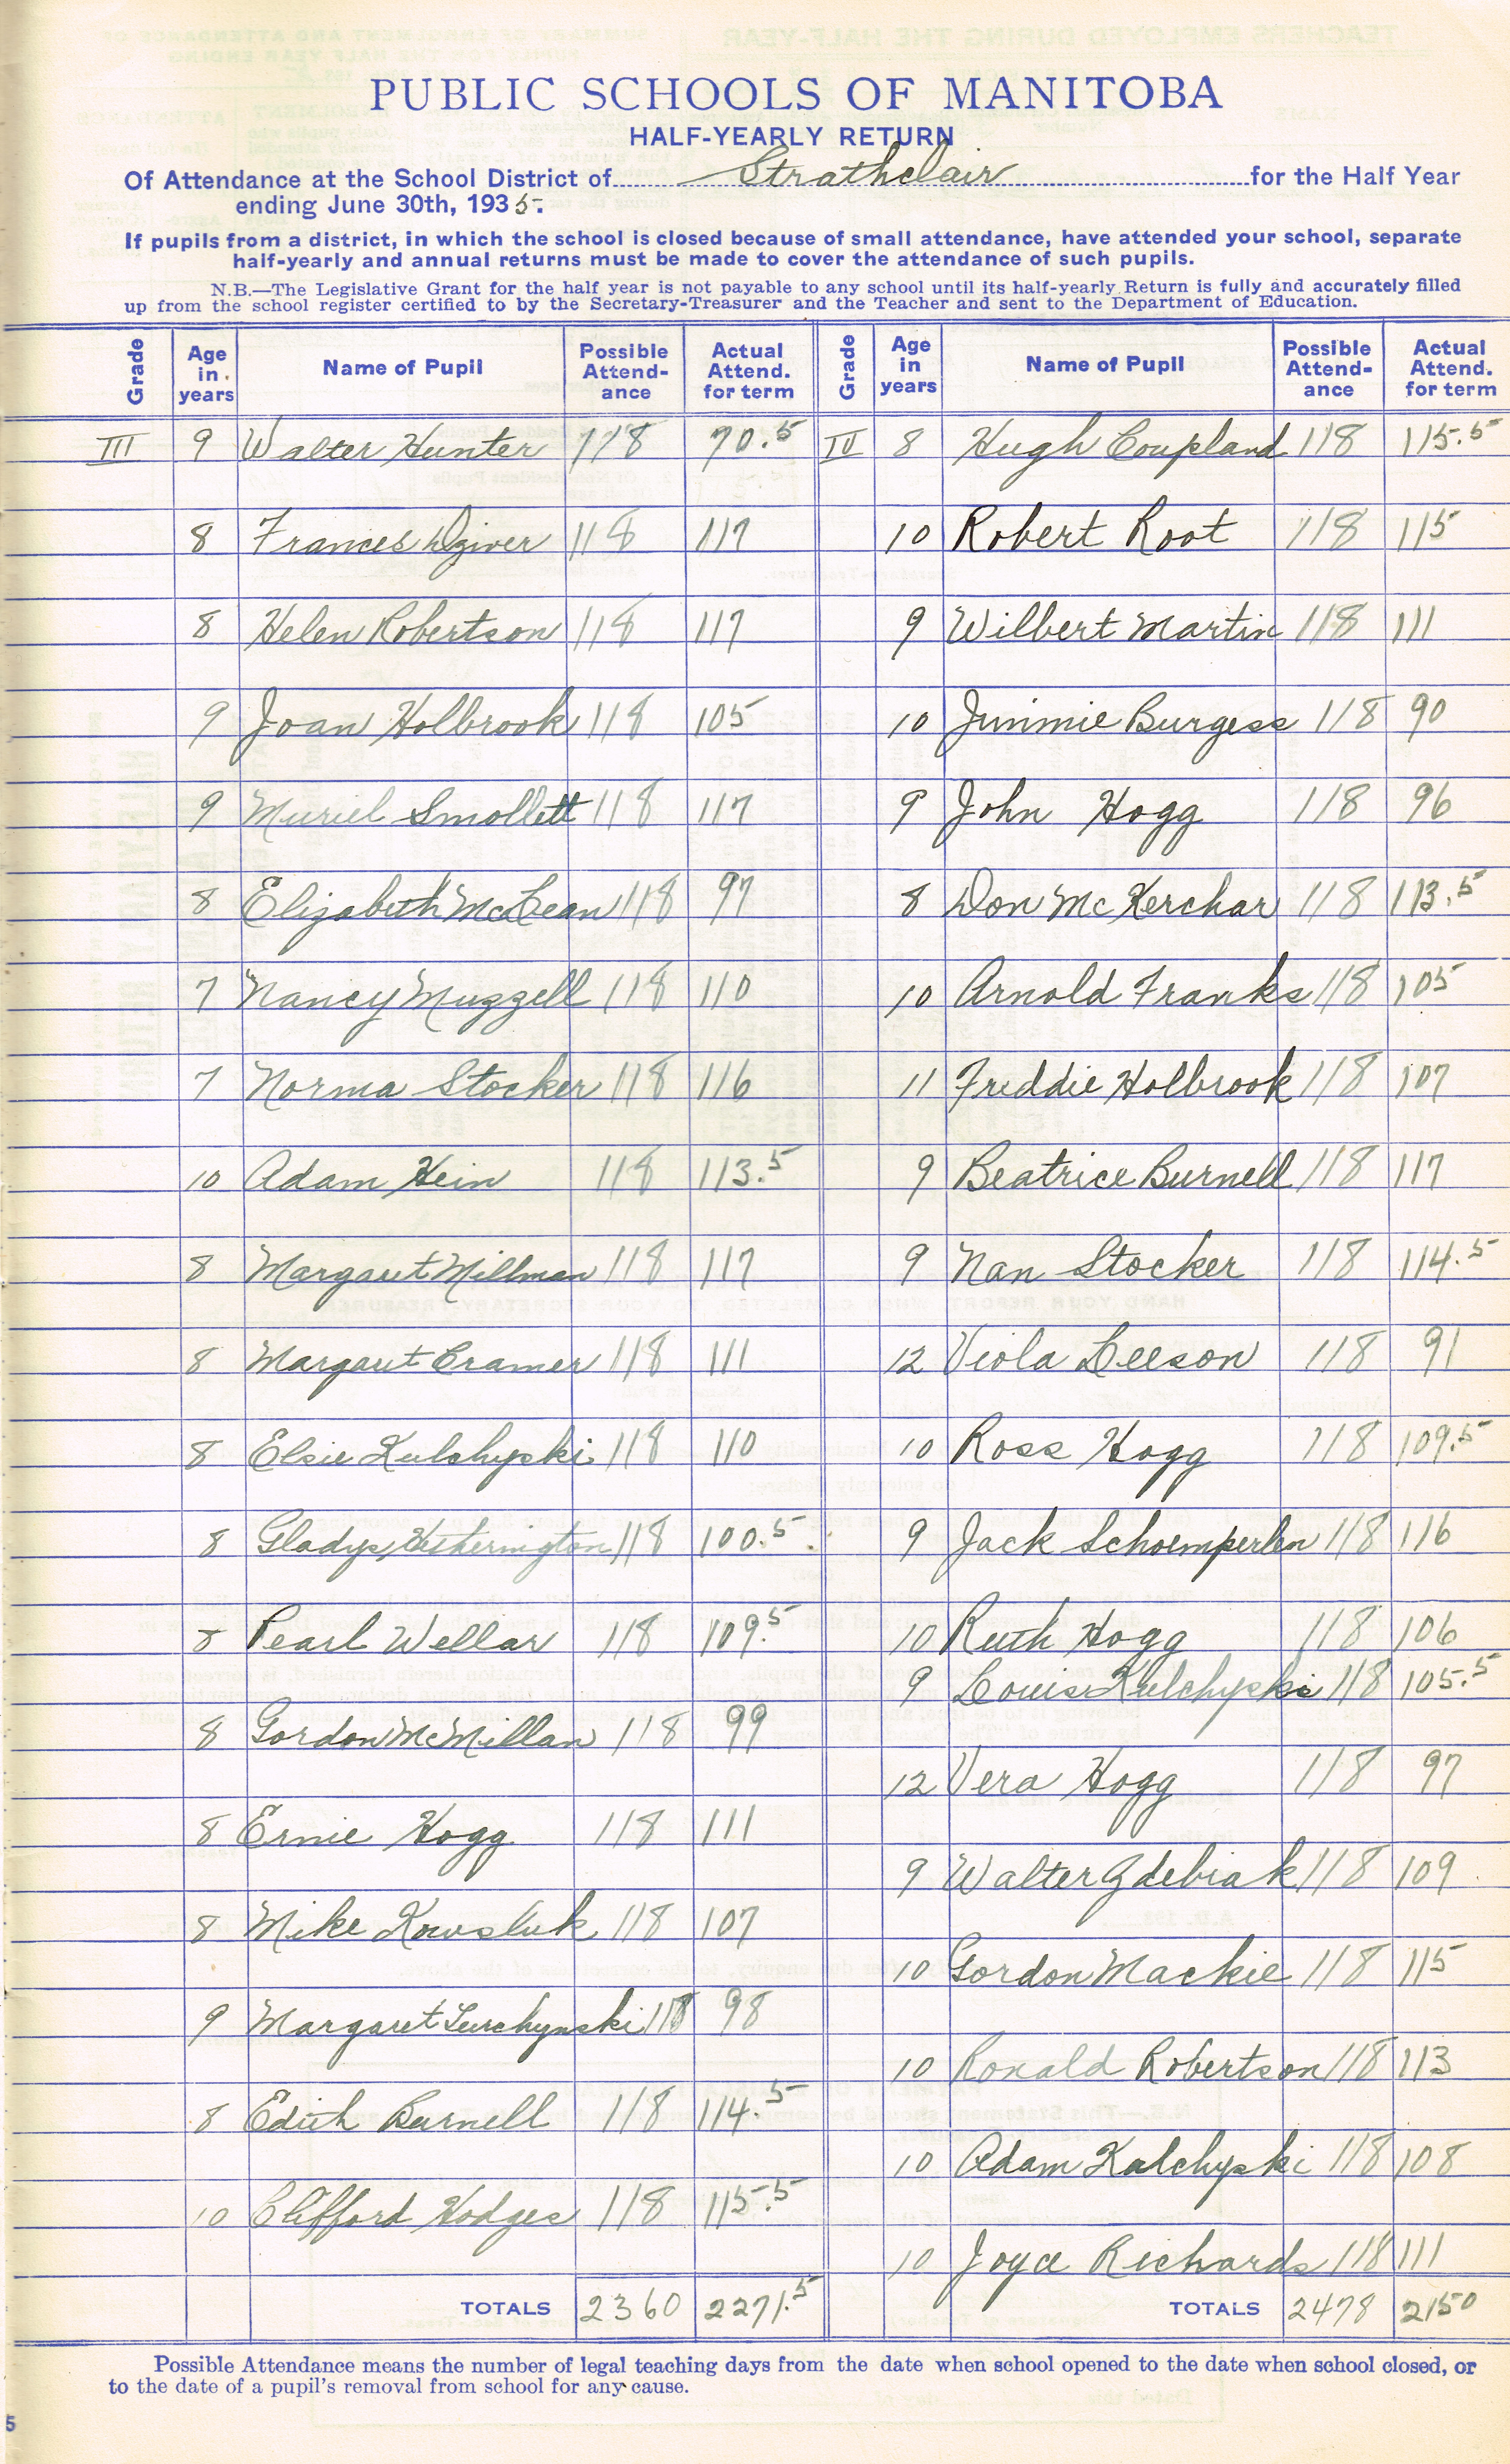 PUBLIC SCHOOLS OF MANITOBA
HALF-YEARLY RETURN
Of Attendance at the School District of Strathclair for the Half Year
ending June 30th, 1935.
If pupils from a district, in which the school is closed because of small attendance, have attended your school, separate
half-yearly and annual returns must be made to cover the attendance of such pupils.
N.B.—The Legislative Grant for the half year is not payable to any school until its half-yearly Return is fully and accurately filled
up from the school register certified to by the Secretary-Treasurer and the Teacher and sent to the Department of Education.
Grade Age in years Name of Pupil Possible Attend-ance Actual Attend. for term
III 9 Walter Hunter 118 70.5
8 Frances 118 117
8 Helen Robertson 118 117
9 Joan Holbrook 118 105
9 Muriel Smollett 118 117
8 Elizabeth McLean 118 97
7 Nancy Muzzell 118 110
7 Norma Stocker 118 116
10 Adam Hein 118 113.5
8 Margaret Millman 118 117
8 Margaret Cramer 118 111
8 Elsie Kulchyski 118 110
8 Gladys Hetherington 118 100.5
8 Pearl Wellar 118 109.5
8 Gordon McMillan 118 99
8 Ernie Hogg 118 111
8 Mike Kowsluk 118 107
9 Margaret 118 98
8 Edith Burnell 118 114.5
10 Clifford Hodges 118 115.5
TOTALS 2360 2271.5
Grade Age in years Name of Pupil Possible Attend-ance Actual Attend. for term
IV 8 Hugh Coupland 118 115.5
10 Robert Root 118 115
9 Wilbert Martin 118 111
10 Jimmie Burgess 118 90
9 John Hogg 118 96
8 Don McKerchar 118 113.5
10 Arnold Franks 118 105
11 Freddie Holbrook 118 107
9 Beatrice Burnell 118 117
9 Nan Stocker 118 114.5
12 Viola Leeson 118 91
10 Ross Hogg 118 109.5
9 Jack Schoemperlen 118 116
10 Ruth Hogg 118 106
9 Louis Kulchyski 118 105.5
12 Vera Hogg 118 97
9 Walter Gdebiak 118 109
10 Gordon Mackie 118 115
10 Ronald Robertson 118 113
10 Adam Kalchyski 118 108
10 Joyce Richards 118 111
TOTALS 2478 2150
Possible Attendance means the number of legal teaching days from the date when school opened to the date when school closed, or
to the date of a pupil's removal from school for any cause.
5